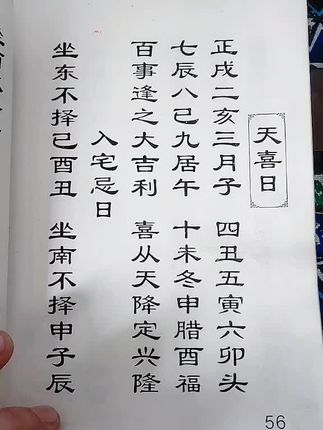 天喜日
正戌二亥三月子 四丑五寅六卯头
七辰八己九居午 十未冬申腊酉福
百事逢之大吉利 喜从天降定兴隆
入宅忌日
坐东不择己酉丑 坐南不择申子辰
56